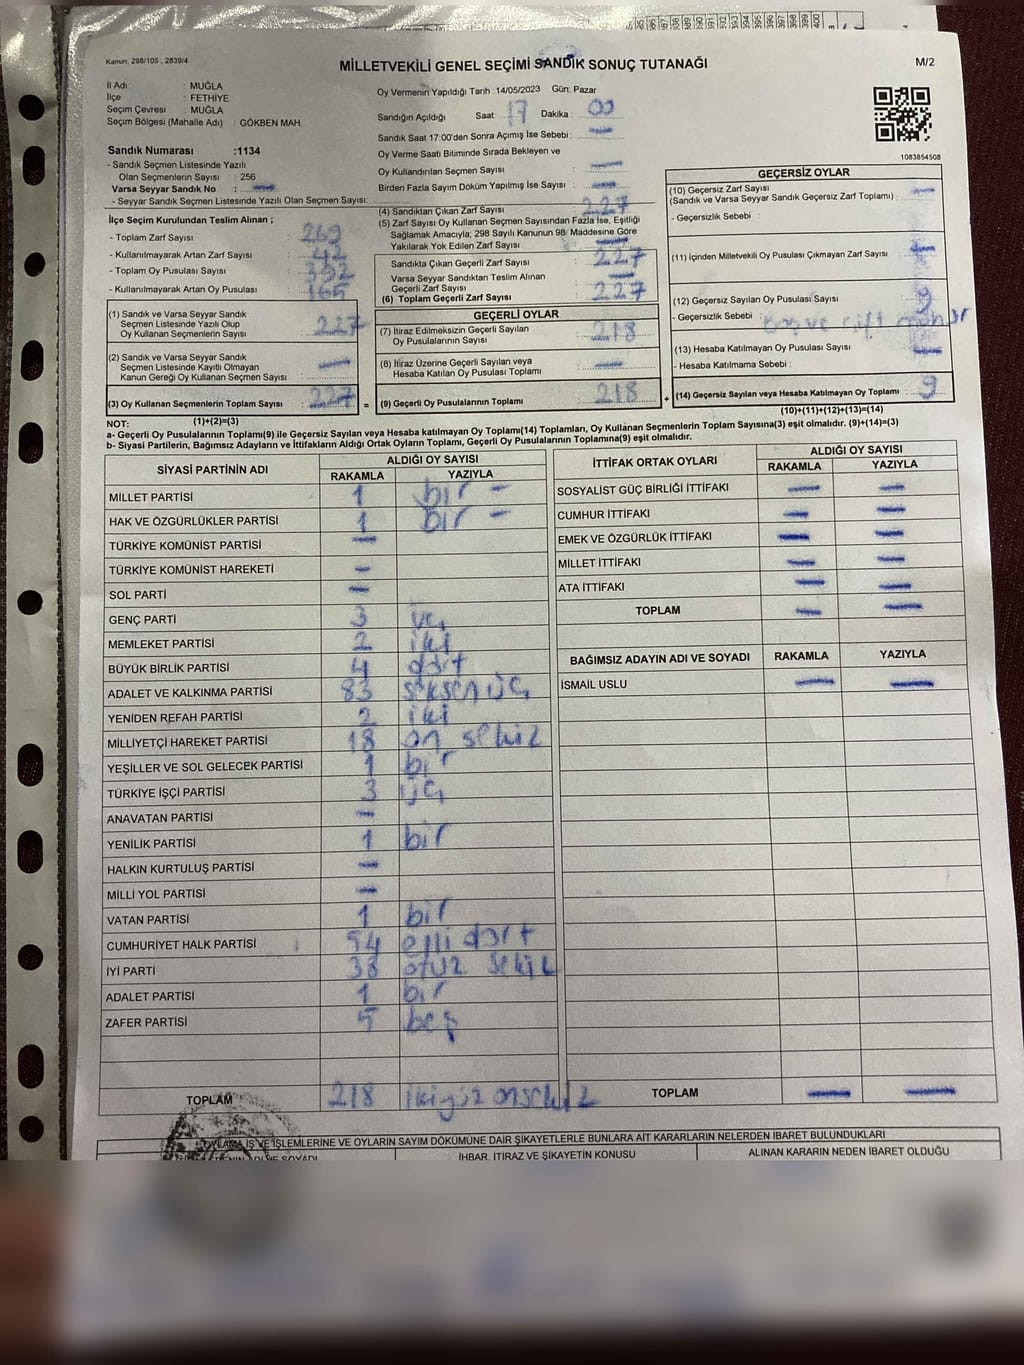 Kanun. 298/105 , 2839/4
MİLLETVEKİLİ GENEL SEÇİMİ SANDIK SONUÇ TUTANAĞI
M/2
İl Adı : MUĞLA
İlçe : FETHİYE
Seçim Çevresi : MUĞLA
Seçim Bölgesi (Mahalle Adı) : GÖKBEN MAH.
Sandık Numarası :1134
- Sandık Seçmen Listesinde Yazılı
Olan Seçmenlerin Sayısı : 256
Varsa Seyyar Sandık No : —
- Seyyar Sandık Seçmen Listesinde Yazılı Olan Seçmen Sayısı:
Oy Vermenin Yapıldığı Tarih :14/05/2023 Gün: Pazar
Sandığın Açıldığı Saat : 17 Dakika : 00
Sandık Saat 17:00'den Sonra Açımış İse Sebebi : —
Oy Verme Saati Bitiminde Sırada Bekleyen ve
Oy Kullandırılan Seçmen Sayısı : —
Birden Fazla Sayım Döküm Yapılmış İse Sayısı : —
1083854508
İlçe Seçim Kurulundan Teslim Alınan ;
- Toplam Zarf Sayısı : 269
- Kullanılmayarak Artan Zarf Sayısı : 42
- Toplam Oy Pusulası Sayısı : 392
- Kullanılmayarak Artan Oy Pusulası : 165
(1) Sandık ve Varsa Seyyar Sandık
Seçmen Listesinde Yazılı Olup
Oy Kullanan Seçmenlerin Sayısı : 227
(2) Sandık ve Varsa Seyyar Sandık
Seçmen Listesinde Kayıtlı Olmayan
Kanun Gereği Oy Kullanan Seçmen Sayısı : —
(3) Oy Kullanan Seçmenlerin Toplam Sayısı : 227
(1)+(2)=(3)
(4) Sandıktan Çıkan Zarf Sayısı : 227
(5) Zarf Sayısı Oy Kullanan Seçmen Sayısından Fazla İse, Eşitliği
Sağlamak Amacıyla; 298 Sayılı Kanunun 98. Maddesine Göre
Yakılarak Yok Edilen Zarf Sayısı : —
Sandıkta Çıkan Geçerli Zarf Sayısı : 227
Varsa Seyyar Sandıktan Teslim Alınan
Geçerli Zarf Sayısı : —
(6) Toplam Geçerli Zarf Sayısı : 227
GEÇERLİ OYLAR
(7) İtiraz Edilmeksizin Geçerli Sayılan
Oy Pusulalarının Sayısı : 218
(8) İtiraz Üzerine Geçerli Sayılan veya
Hesaba Katılan Oy Pusulaları Toplamı : —
= (9) Geçerli Oy Pusulalarının Toplamı : 218
GEÇERSİZ OYLAR
(10) Geçersiz Zarf Sayısı
(Sandık ve Varsa Seyyar Sandık Geçersiz Zarf Toplamı) : —
- Geçersizlik Sebebi :
(11) İçinden Milletvekili Oy Pusulası Çıkmayan Zarf Sayısı : —
(12) Geçersiz Sayılan Oy Pusulası Sayısı : 9
- Geçersizlik Sebebi : boş ve çift mühür
(13) Hesaba Katılmayan Oy Pusulası Sayısı : —
- Hesaba Katılmama Sebebi :
+ (14) Geçersiz Sayılan veya Hesaba Katılmayan Oy Toplamı : 9
(10)+(11)+(12)+(13)=(14)
NOT:
a- Geçerli Oy Pusulalarının Toplamı(9) ile Geçersiz Sayılan veya Hesaba katılmayan Oy Toplamı(14) Toplamları, Oy Kullanan Seçmenlerin Toplam Sayısına(3) eşit olmalıdır. (9)+(14)=(3)
b- Siyasi Partilerin, Bağımsız Adayların ve İttifakların Aldığı Ortak Oyların Toplamı, Geçerli Oy Pusulalarının Toplamına(9) eşit olmalıdır.
SİYASİ PARTİNİN ADI ALDIĞI OY SAYISI
RAKAMLA YAZIYLA
MİLLET PARTİSİ 1 bir —
HAK VE ÖZGÜRLÜKLER PARTİSİ 1 bir —
TÜRKİYE KOMÜNİST PARTİSİ —
TÜRKİYE KOMÜNİST HAREKETİ —
SOL PARTİ —
GENÇ PARTİ 3 üç
MEMLEKET PARTİSİ 2 iki
BÜYÜK BİRLİK PARTİSİ 4 dört
ADALET VE KALKINMA PARTİSİ 83 seksen üç
YENİDEN REFAH PARTİSİ 2 iki
MİLLİYETÇİ HAREKET PARTİSİ 18 on sekiz
YEŞİLLER VE SOL GELECEK PARTİSİ 1 bir
TÜRKİYE İŞÇİ PARTİSİ 3 üç
ANAVATAN PARTİSİ —
YENİLİK PARTİSİ 1 bir
HALKIN KURTULUŞ PARTİSİ —
MİLLİ YOL PARTİSİ —
VATAN PARTİSİ 1 bir
CUMHURİYET HALK PARTİSİ 54 elli dört
İYİ PARTİ 38 otuz sekiz
ADALET PARTİSİ 1 bir
ZAFER PARTİSİ 5 beş
TOPLAM 218 ikiyüz onsekiz
İTTİFAK ORTAK OYLARI ALDIĞI OY SAYISI
RAKAMLA YAZIYLA
SOSYALİST GÜÇ BİRLİĞİ İTTİFAKI — —
CUMHUR İTTİFAKI — —
EMEK VE ÖZGÜRLÜK İTTİFAKI — —
MİLLET İTTİFAKI — —
ATA İTTİFAKI — —
TOPLAM — —
BAĞIMSIZ ADAYIN ADI VE SOYADI RAKAMLA YAZIYLA
İSMAİL USLU — —
TOPLAM — —
OYLAMA İŞ VE İŞLEMLERİNE VE OYLARIN SAYIM DÖKÜMÜNE DAİR ŞİKAYETLERLE BUNLARA AİT KARARLARIN NELERDEN İBARET BULUNDUKLARI
İHBAR, İTİRAZ VE ŞİKAYETİN KONUSU
ALINAN KARARIN NEDEN İBARET OLDUĞU